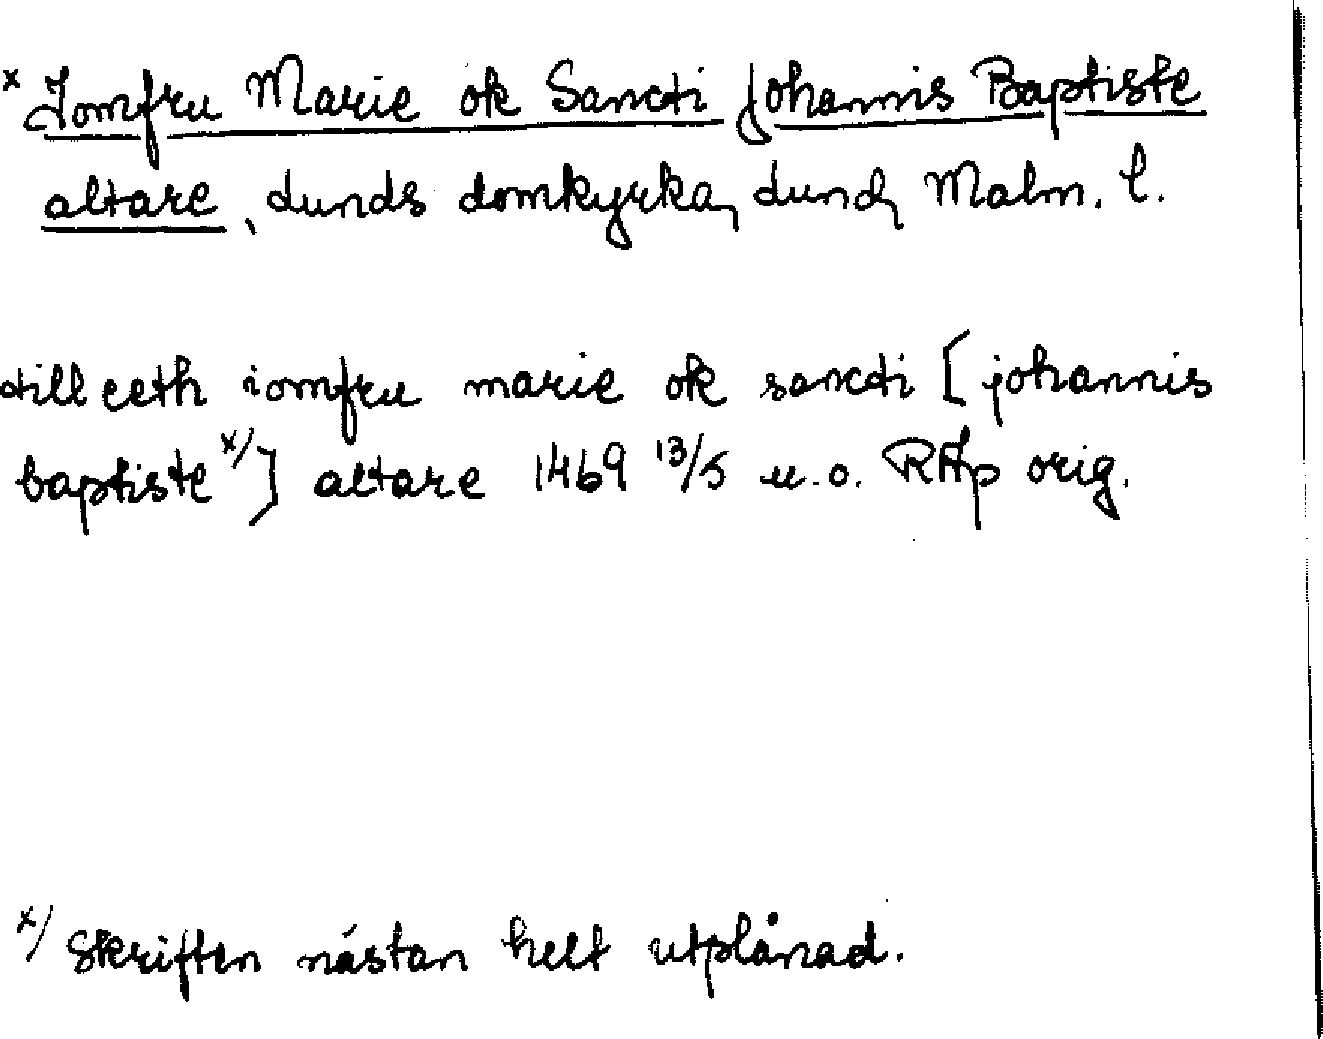 x Jomfru Marie ok Sancti Johannis Baptiste
altare, Lunds domkyrka, Lund, Malm. l.
till eeth iomfru marie ok sancti [johannis
baptiste x/] altare 1469 13/5 u.o. RAp orig.
x/ Skriften nästan helt utplånad.